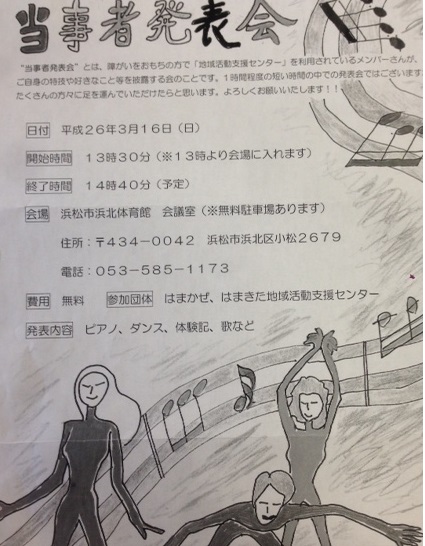 当事者発表会
"当事者発表会"とは、障がいをおもちの方で「地域活動支援センター」を利用されているメンバーさんが、
ご自身の特技や好きなこと等を披露する会のことです。1時間程度の短い時間の中での発表会ではございます
たくさんの方々に足を運んでいただけたらと思います。よろしくお願いいたします！！
日付 平成26年3月16日（日）
開始時間 13時30分（※13時より会場に入れます）
終了時間 14時40分（予定）
会場 浜松市浜北体育館 会議室（※無料駐車場あります）
住所：〒434－0042 浜松市浜北区小松2679
電話：053－585－1173
費用 無料 参加団体 はまかぜ、はまきた地域活動支援センター
発表内容 ピアノ、ダンス、体験記、歌など